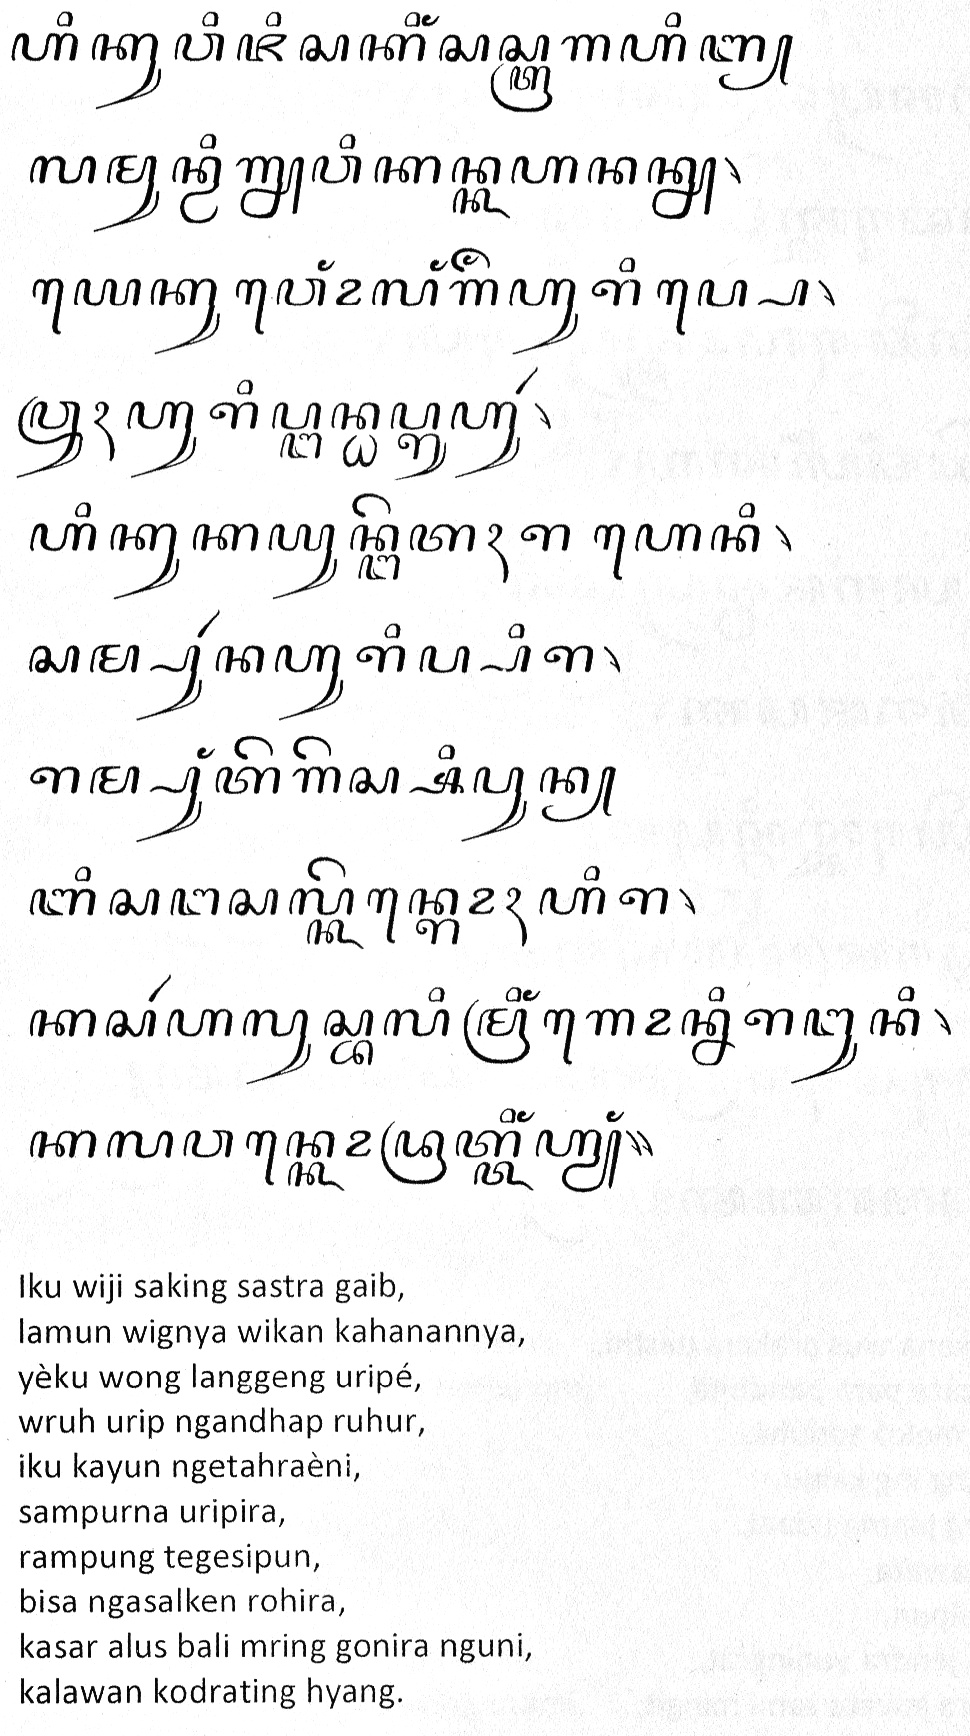 ꦲꦶꦏꦸꦮꦶꦗꦶꦱꦏꦶꦁꦱꦱ꧀ꦠꦿꦒꦲꦶꦧ꧀
ꦭꦩꦸꦤ꧀ꦮꦶꦒ꧀ꦚꦮꦶꦏꦤ꧀ꦏꦲꦤꦤ꧀ꦚ꧈
ꦪꦺꦏꦸꦮꦺꦴꦁꦭꦁꦒꦼꦁꦲꦸꦫꦶꦥꦺ꧈
ꦮꦿꦸꦃꦲꦸꦫꦶꦥ꧀ꦔꦤ꧀ꦝꦥ꧀ꦫꦸꦲꦸꦂ꧈
ꦲꦶꦏꦸꦏꦪꦸꦤ꧀ꦔꦼꦠꦃꦫꦲꦺꦤꦶ꧈
ꦱꦩ꧀ꦥꦸꦂꦤꦲꦸꦫꦶꦥꦶꦫ꧈
ꦫꦩ꧀ꦥꦸꦁꦠꦼꦒꦼꦱ꧀ꦱꦶꦥꦸꦤ꧀
ꦧꦶꦱꦔꦱꦭ꧀ꦏꦼꦤ꧀ꦫꦺꦴꦃꦲꦶꦫ꧈
ꦏꦱꦂꦲꦭꦸꦱ꧀ꦧꦭꦶꦩꦿꦶꦁꦒꦺꦴꦤ꧀ꦤꦶꦫꦔꦸꦤꦶ꧈
ꦏꦭꦮꦤ꧀ꦏꦺꦴꦢꦿꦠ꧀ꦠꦶꦁꦲꦾꦁ꧉
Iku wiji saking sastra gaib,
lamun wignya wikan kahanannya,
yèku wong langgeng uripé,
wruh urip ngandhap ruhur,
iku kayun ngetahraèni,
sampurna uripira,
rampung tegesipun,
bisa ngasalken rohira,
kasar alus bali mring gonira nguni,
kalawan kodrating hyang.